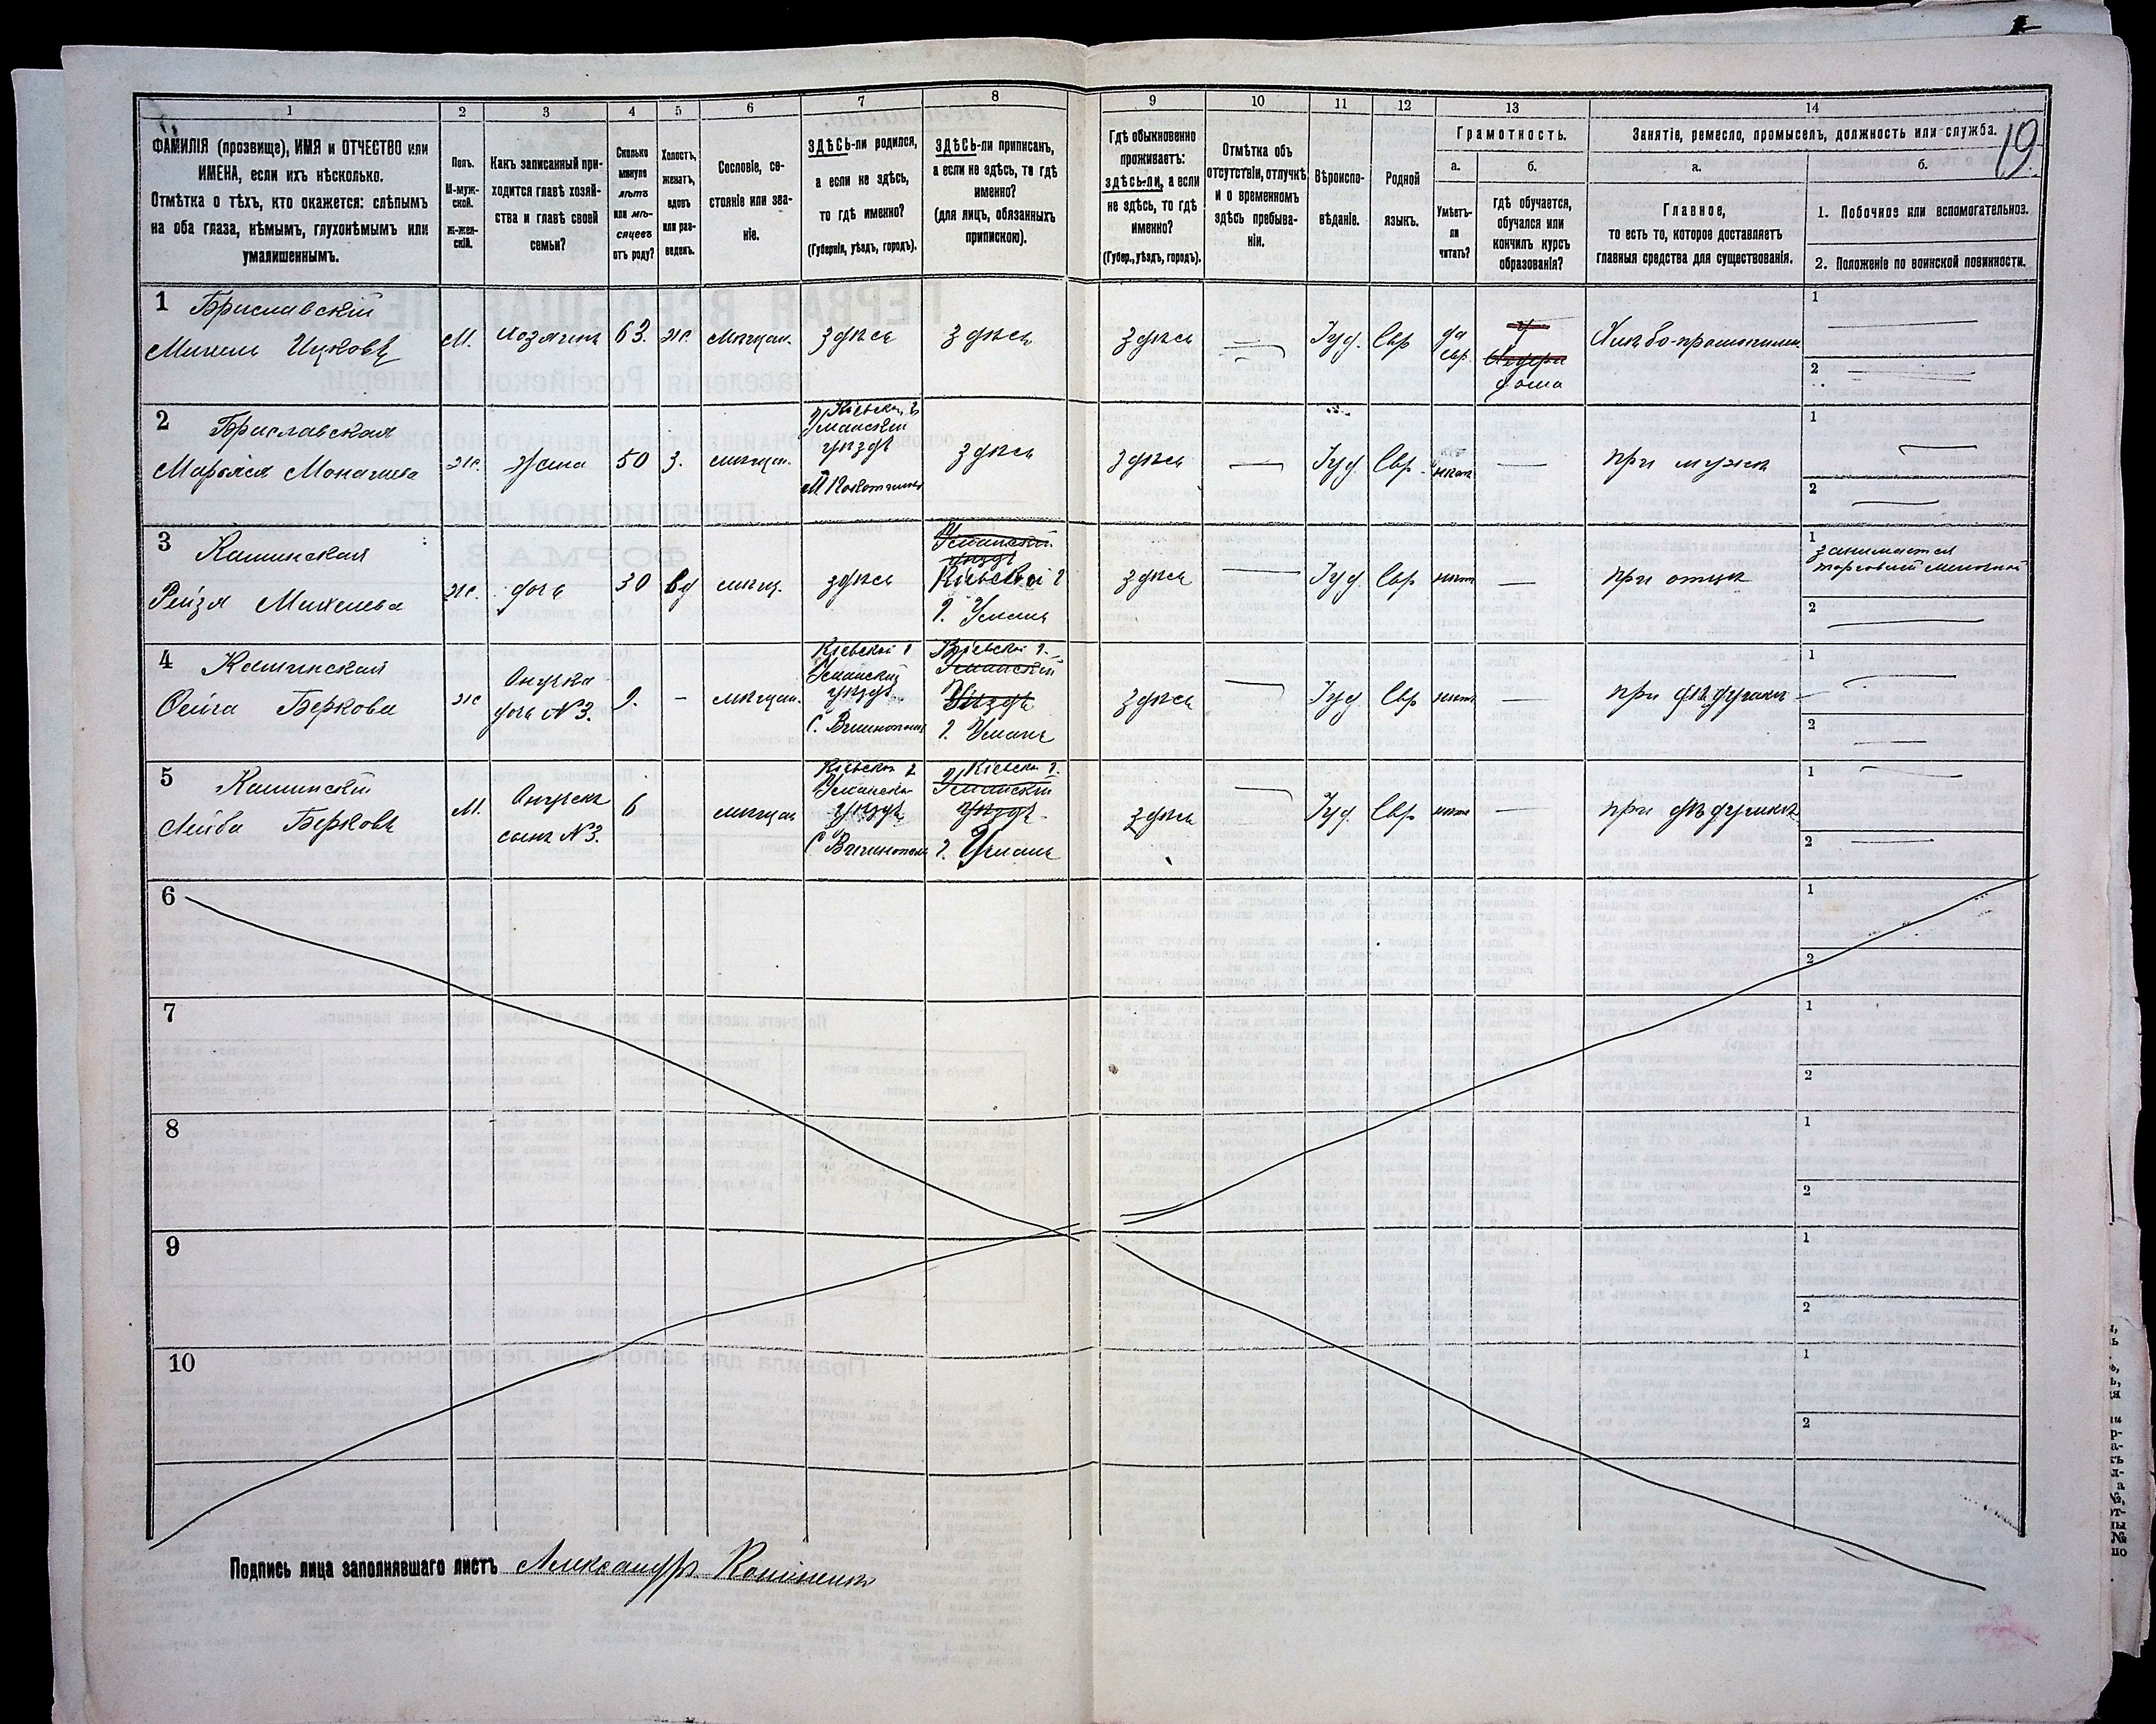 19
1
ФАМИЛІЯ (прозвище), ИМЯ и ОТЧЕСТВО или
ИМЕНА, если ихъ нѣсколько.
Отмѣтка о тѣхъ, кто окажется: слѣпымъ
на оба глаза, нѣмымъ, глухонѣмымъ или
умалишеннымъ.
2
Полъ.
М-муж-
ской.
ж-жен-
скій.
3
Какъ записанный при-
ходится главѣ хозяй-
ства и главѣ своей
семьи?
4
Сколько
минуло
лѣтъ
или мѣ-
сяцевъ
отъ роду?
5
Холостъ,
женатъ,
вдовъ
или раз-
веденъ.
6
Сословіе, со-
стояніе или зва-
ніе.
7
ЗДѢСЬ-ли родился,
а если не здѣсь,
то гдѣ именно?
(Губернія, уѣздъ, городъ).
8
ЗДѢСЬ-ли приписанъ,
а если не здѣсь, то гдѣ
именно?
(для лицъ, обязанныхъ
припискою).
9
Гдѣ обыкновенно
проживаетъ:
здѣсь-ли, а если
не здѣсь, то гдѣ
именно?
(Губер., уѣздъ, городъ).
10
Отмѣтка объ
отсутствіи, отлучкѣ
и о временномъ
здѣсь пребыва-
ніи.
11
Вѣроиспо-
вѣданіе.
12
Родной
языкъ.
13
Грамотность.
а.
Умѣетъ-
ли
читать?
б.
гдѣ обучается,
обучался или
кончилъ курсъ
образованія?
14
Занятіе, ремесло, промыселъ, должность или служба.
а.
Главное,
то есть то, которое доставляетъ
главныя средства для существованія.
б.
1. Побочное или вспомогательное.
2. Положеніе по воинской повинности.
1 Бриславскій
Михель Ицковъ
М.
хозяинъ
63.
ж.
Мѣщан.
здѣсь
здѣсь
здѣсь
Іуд.
Евр
да
евр.
дома
1
2
2 Бриславская
Марьяся
ж.
жена
50
з.
мѣщан.
Кіевск. г
Уманскій
уѣздъ
здѣсь
здѣсь
Іуд.
Евр.
нѣтъ
при мужѣ
1
2
3 Кашинская
Рейзя Михелева
ж.
дочь
30
вд
мѣщ.
здѣсь
Уманскій
уѣздъ
Кіевской г
г. Умань
здѣсь
Іуд.
Евр
нѣтъ
при отцѣ
1
занимается
торговлей мелочной
2
4 Кашинская
Бѣркова
ж
Внучка
дочь №3.
9.
-
мѣщан.
Кіевской г
Уманскій
уѣздъ
Кіевской г.
Уманскій
Уѣздъ
г. Умань
здѣсь
Іуд.
Евр
нѣтъ
при дѣдушкѣ
1
2
5 Кашинскій
Лейба Бѣрковъ
М.
Внукъ
сынъ №3.
6
мѣщан
Кіевской г
Уманскій
уѣздъ
Кіевск г.
Уманскій
уѣздъ
г. Умань
здѣсь
Іуд.
Евр
нѣтъ
при дѣдушкѣ
1
2
6
1
2
7
1
2
8
1
2
9
1
2
10
1
2
Подпись лица заполнявшаго листъ Александръ